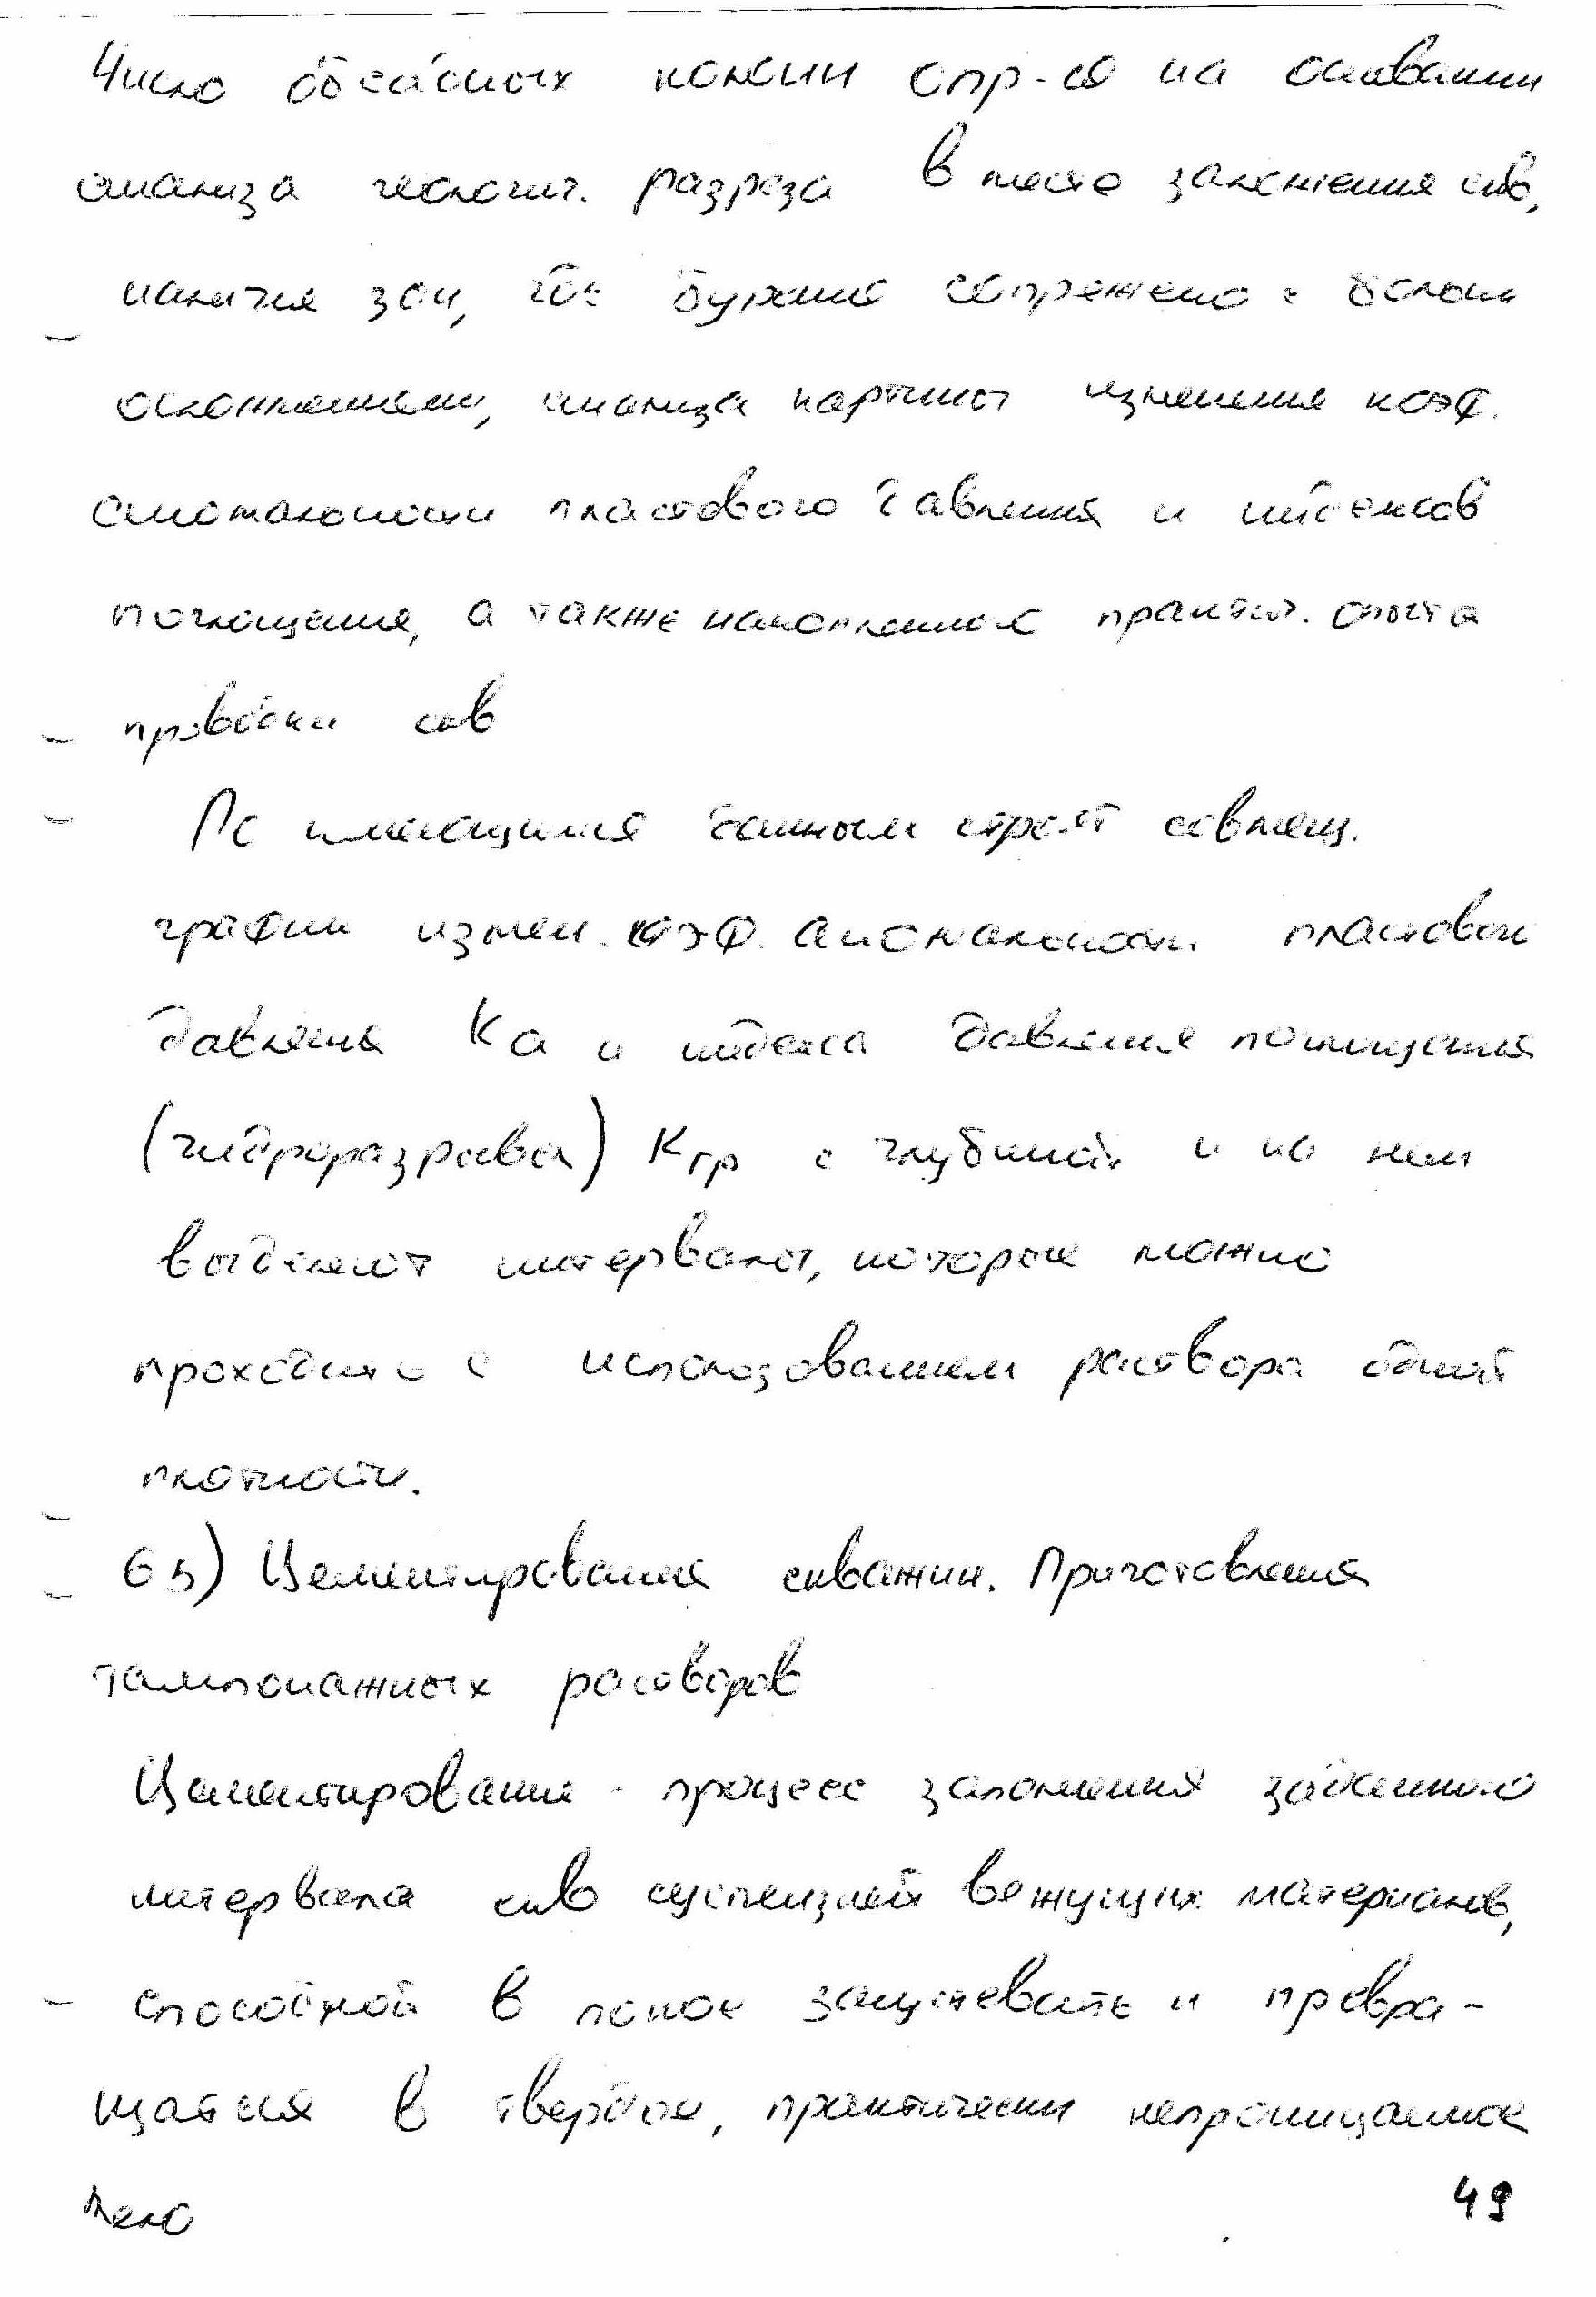 Число обсадных колонн опр-ся на основании
анализа геологич. разреза в месте заложения скв,
наличия зон, где бурение сопряжено с больш
осложнениями, анализа картины изменения коэф.
аномальности пластового давления и индексов
поглощения, а также накопленного практич. опыта
проводки скв
По имеющимся данным строят совмещ.
график измен. коэф. аномальности пластовог
давления Ka и индекса давления поглощения
(гидроразрыва) Kгр с глубиной и на нем
выделяют интервалы, которые можно
проходить с использованием раствора одной
плотности.
65) Цементирования скважин. Приготовления
тампонажных растворов
Цементирование - процесс заполнения заданного
интервала скв суспензией вяжущих материалов,
способной в покое загустевать и превра-
щатся в твердое, практически непроницаемое
тело
49